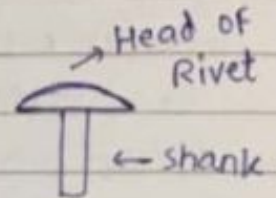 Head of
Rivet
shank